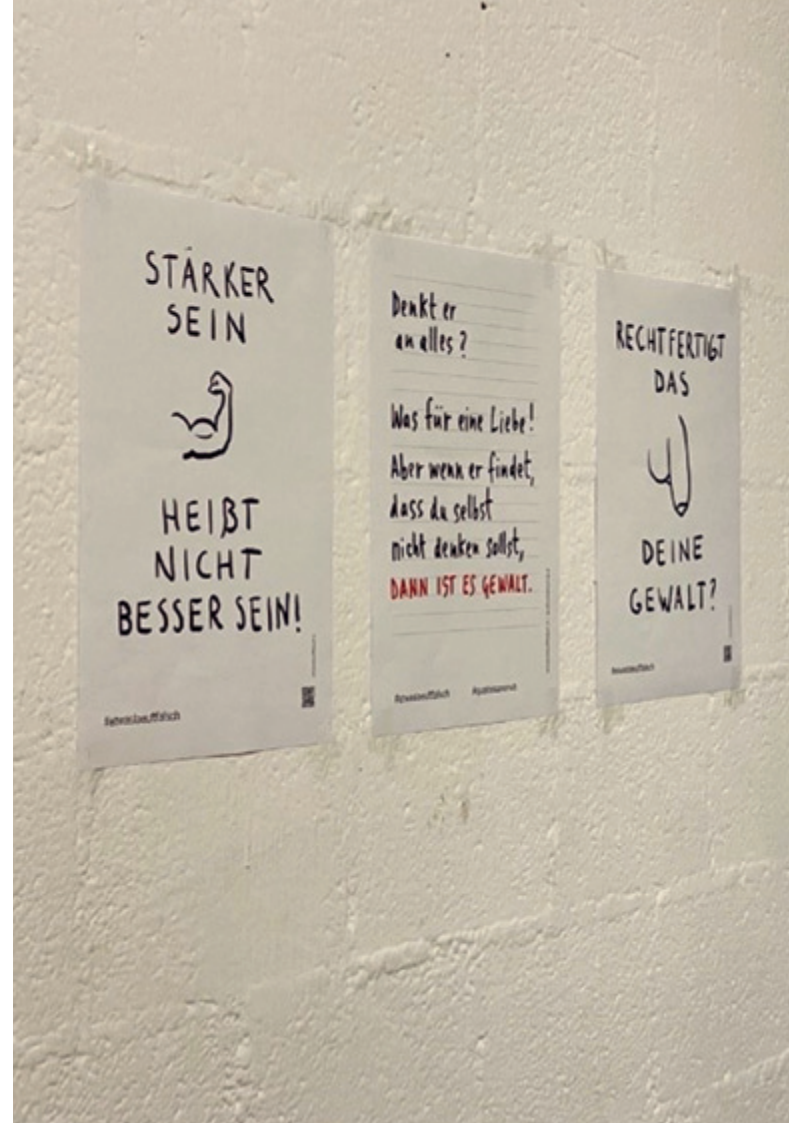 STÄRKER
SEIN
HEIßT
NICHT
BESSER SEIN!
Denkt er
an alles?
Was für eine Liebe!
Aber wenn er findet,
dass du selbst
nicht denken sollst,
DANN IST ES GEWALT.
RECHTFERTIGT
DAS
DEINE
GEWALT?